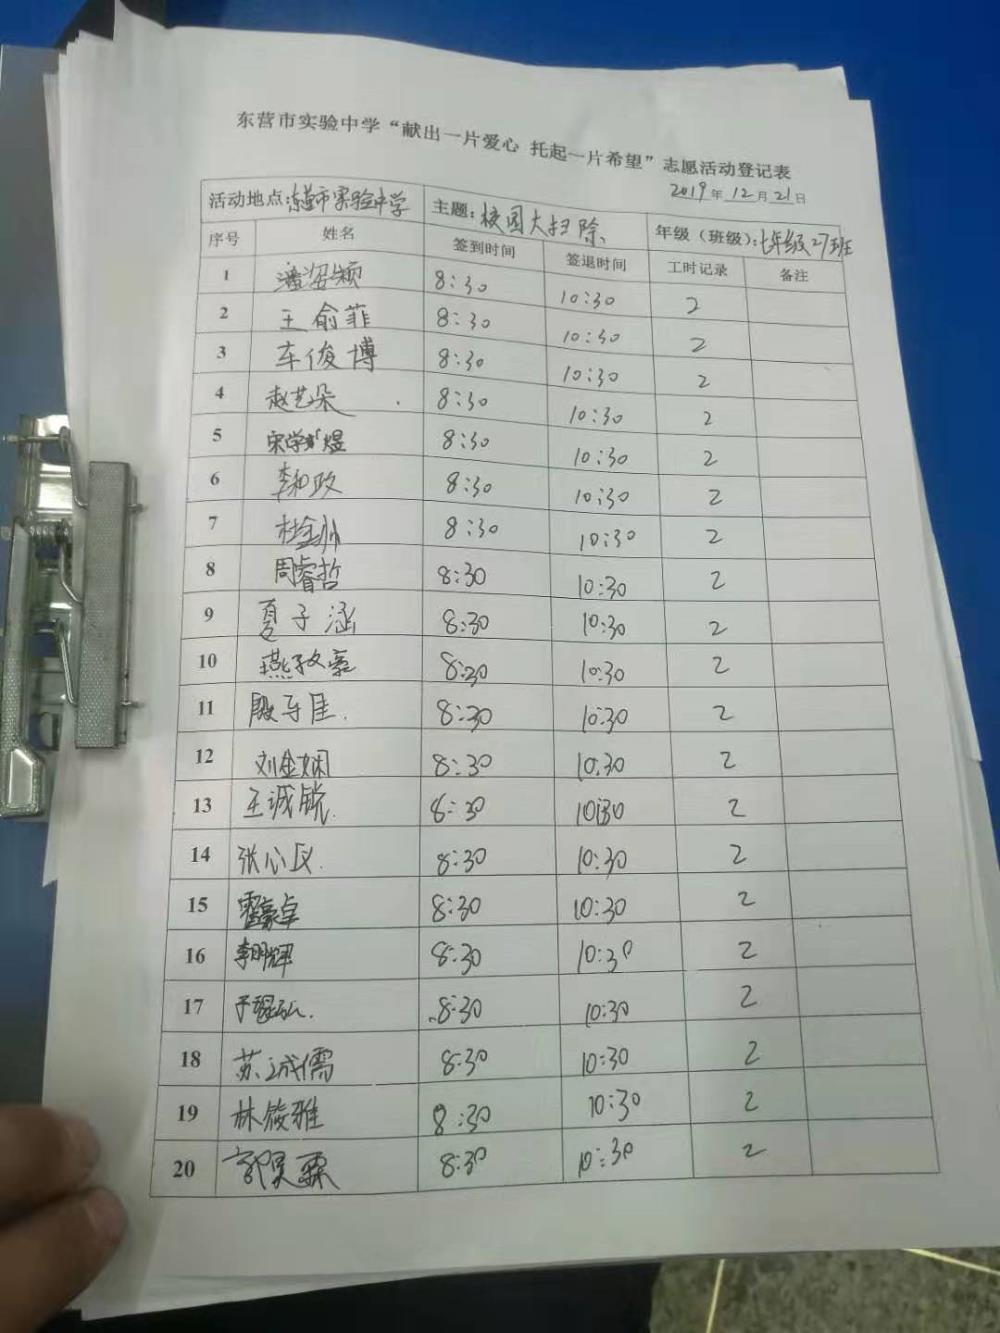 东营市实验中学“献出一片爱心 托起一片希望”志愿活动登记表
2019年12月21日
活动地点:东营市实验中学 主题:校园大扫除、 年级（班级）:七年级27班
序号 姓名 签到时间 签退时间 工时记录 备注
1 潘 颖 8:30 10:30 2
2 王俞菲 8:30 10:30 2
3 车俊博 8:30 10:30 2
4 赵艺朵 8:30 10:30 2
5 宋学 煜 8:30 10:30 2
6 李和政 8:30 10:30 2
7 杜金帅 8:30 10:30 2
8 周睿哲 8:30 10:30 2
9 夏子涵 8:30 10:30 2
10 燕 8:30 10:30 2
11 殷 佳. 8:30 10:30 2
12 刘金娴 8:30 10:30 2
13 王诚锐. 8:30 10:30 2
14 张心仪. 8:30 10:30 2
15 豪卓 8:30 10:30 2
16 李明辉 8:30 10:30 2
17 于 弘. 8:30 10:30 2
18 苏诚儒 8:30 10:30 2
19 林筱雅 8:30 10:30 2
20 郭昊霖 8:30 10:30 2